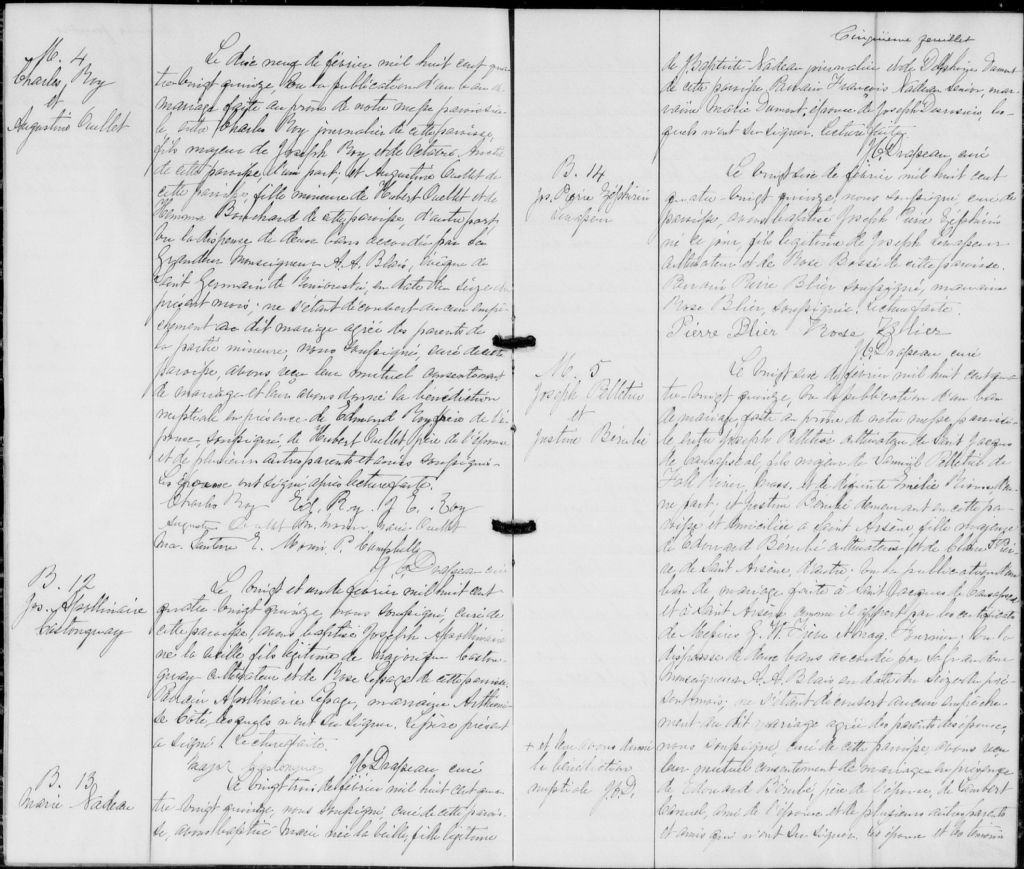 M. 4
Charles Roy
et
Augustine Ouellet
Le dix neuf de février mil huit cent qua-
tre-vingt quinze, vu la publication d'un ban de
mariage faite au prône de notre messe paroissia-
le, entre Charles Roy journalier de cette paroisse,
fils majeur de Joseph Roy et de Octavie
de cette paroisse, d'une part; et Augustine Ouellet de
cette paroisse, fille mineure de Hubert Ouellet et de
Bouchard de cette paroisse, d'autre part,
vu la dispense de deux bans accordée par Sa
Grandeur Monseigneur A. A. Blais, évêque de
Saint Germain de Rimouski, en date du seize du
présent mois; ne s'étant découvert aucun empê-
chement au dit mariage agréé des parents de
la partie mineure, nous soussigné, curé de cette
paroisse, avons reçu leur mutuel consentement
de mariage et leur avons donné la bénédiction
nuptiale en présence de Edmond Roy frère de l'é-
poux, soussigné, de Hubert Ouellet père de l'épouse
et de plusieurs autres parents et amis soussigné-
Les époux ont signé après lecture faite.
Charles Roy Ed. Roy J. E. Roy
Ouellet Marie Ouellet
E. Morin P. Campbell
J. C. Drapeau curé
B. 12
Jos. Apollinaire
Castonguay
Le vingt et un de février mil huit cent
quatre-vingt quinze, nous soussigné, curé de
cette paroisse, avons baptisé Joseph Apollinaire
né la veille, fils légitime de Majorique Caston-
guay cultivateur et de Rose Lepage de cette paroisse.
Parrain Apollinaire Lepage, marraine Arthémi-
se Côté, lesquels n'ont su signer. Le père présent
a signé. Lecture faite.
Castonguay J. C. Drapeau curé
B. 13
Marie Nadeau
Le vingt trois de février mil huit cent qua-
tre-vingt quinze, nous soussigné, curé de cette parois-
se, avons baptisé Marie née la veille, fille légitime
Cinquième feuillet
de J. Baptiste Nadeau journalier et de D. Dumont
de cette paroisse. Parrain François Nadeau, mar-
raine Marie Dumont, épouse de Joseph, les-
quels n'ont su signer. Lecture faite.
J. C. Drapeau, curé
B. 14
Jos. Pierre Zéphirin
Levasseur
Le vingt six de février mil huit cent
quatre-vingt quinze, nous soussigné, curé de cette
paroisse, avons baptisé Joseph Pierre Zéphirin
né ce jour, fils légitime de Joseph Levasseur
cultivateur et de Rose Bossé de cette paroisse.
Parrain Pierre Blier soussigné, marraine
Rose Blier, soussignée. Lecture faite.
Pierre Blier Rose Blier
J. C. Drapeau curé
M. 5
Joseph Pelletier
et
Justine Bérubé
Le vingt six de février mil huit cent qua-
tre-vingt quinze, vu la publication d'un ban
de mariage faite au prône de notre messe paroissia-
le entre Joseph Pelletier cultivateur de Saint Jacques
de Causapscal, fils majeur de Samuel Pelletier de
Fall River, Mass. et de défunte Emélie, d'u-
ne part, et Justine Bérubé demeurant en cette pa-
roisse et domiciliée à Saint Arsène, fille majeure
de Edouard Bérubé cultivateur et de
de Saint Arsène, d'autre. Vu la publication d'un
ban de mariage faite à Saint Jacques de Causapscal
et à Saint Arsène comme il appert par les certificats
de Messires Fournier; vu la
dispense de deux bans accordée par Sa Grandeur
Monseigneur A. A. Blais en date du seize du pré-
sent mois; ne s'étant découvert aucun empêche-
ment au dit mariage agréé des parents des époux,
nous soussigné, curé de cette paroisse, avons reçu
leur mutuel consentement de mariage + en présence
de Edouard Bérubé, père de l'épouse, de Lambert
, ami de l'époux et de plusieurs autres parents
et amis qui n'ont su signer, les époux et les témoins
+ et leur avons donné
la bénédiction
nuptiale J. C. D.